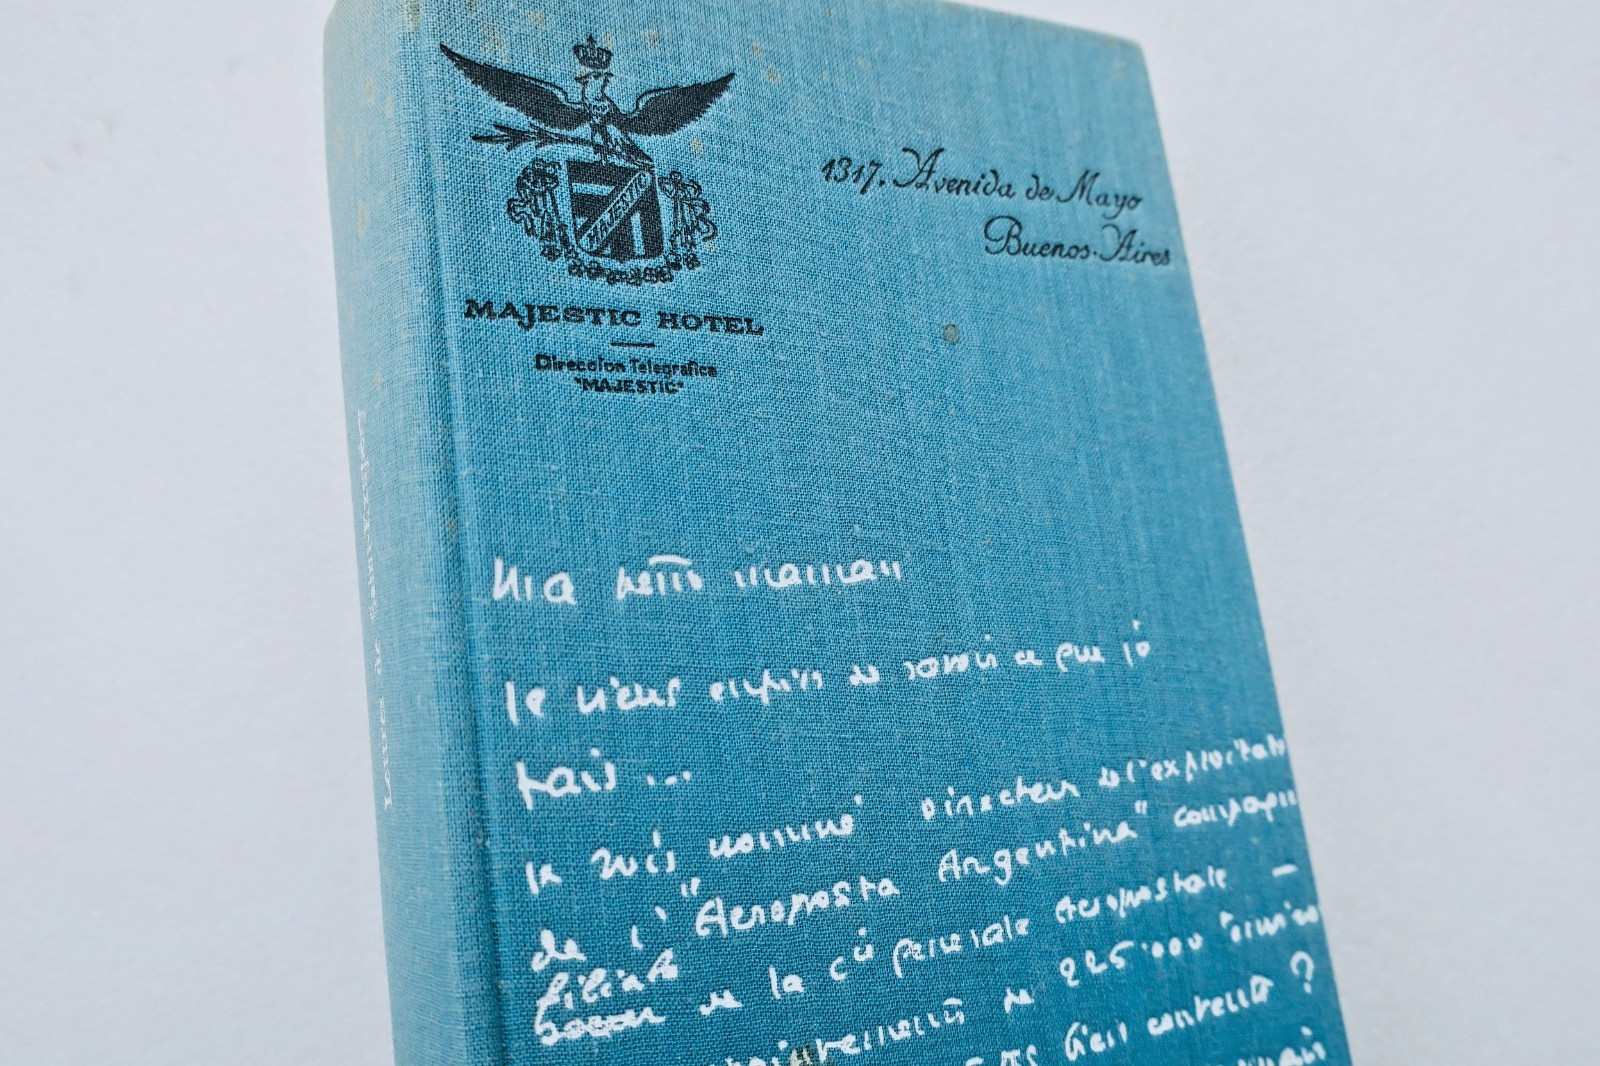 MAJESTIC
1317. Avenida de Mayo
Buenos-Aires
MAJESTIC HOTEL
Direccion Telegrafica
"MAJESTIC"
Lettres de Saint-Exupéry
Ma petite maman
Je viens enfin de savoir ce que je
fais ...
Je suis nommé Directeur de l'exploitation
de l' "Aeroposta Argentina" compagnie
filiale de la Cie générale Aéropostale –
de 225.000
bien contente ?